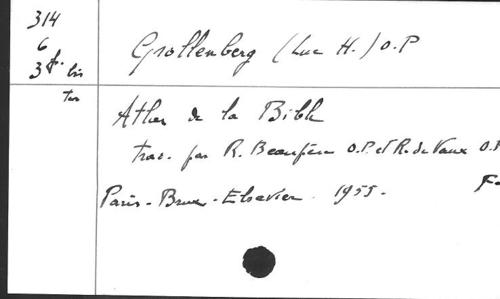 314
6
3 f. bis
ter
Grollenberg (Luc H.) O.P
Atlas de la Bible
trad. par R. Beaupère O.P. et R. de Vaux O.P
Paris - Brux - Elsevier. 1955.
F